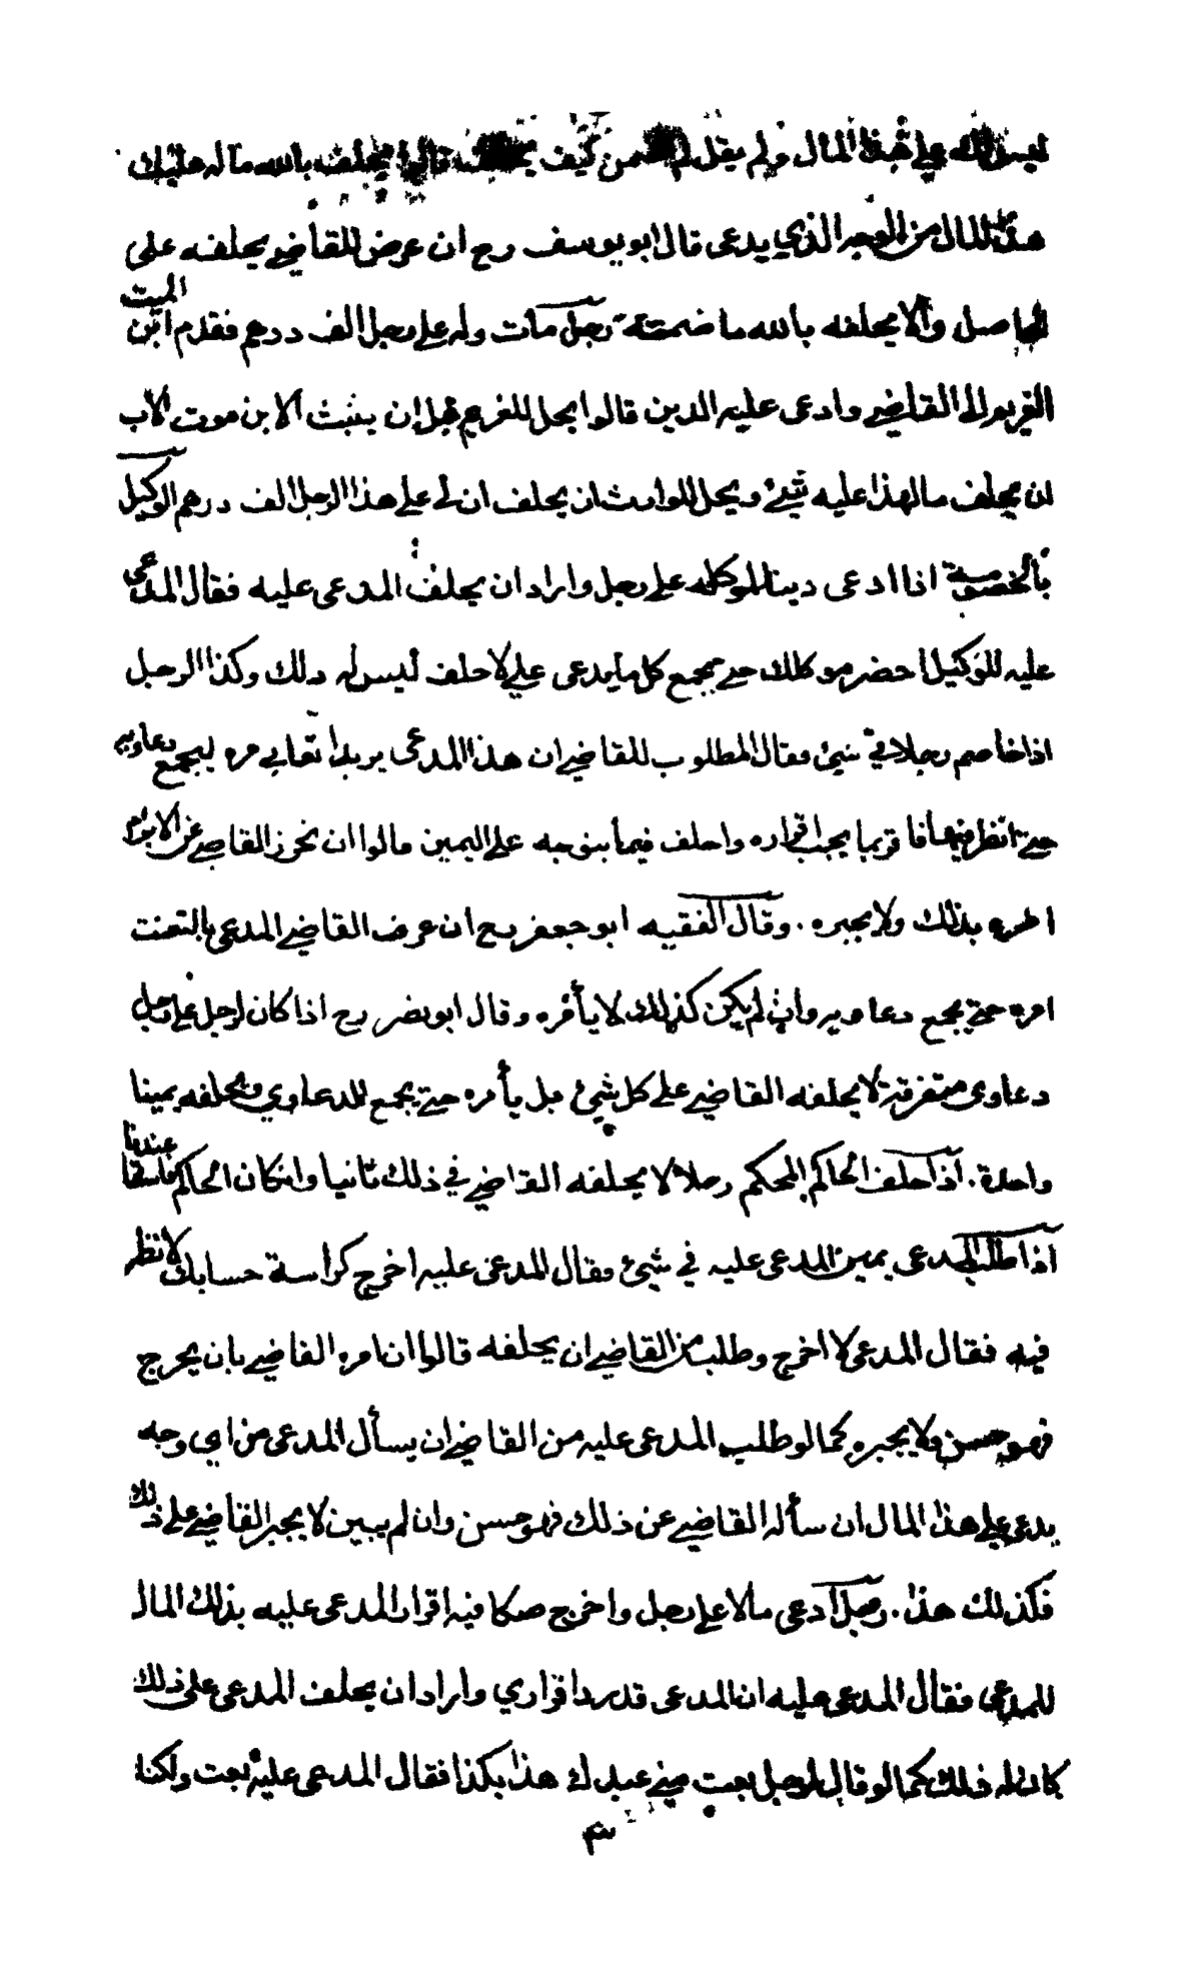 ليس له على هذا المال ولم يقل من كيف يحلف قالوا يحلف بالله ماله عليك
هذا المال من الوجه الذي يدعى قال ابو يوسف رح ان عرض للقاضي يحلفه على
الحاصل والا يحلفه بالله ما ضمنته رجل مات وله على رجل الف درهم فقدم ابن الميت
الغريم الى القاضي وادعى عليه الدين قالوا يحل للغريم قبل ان يثبت الابن موت الاب
ان يحلف ما لهذا عليه شيئ ويحل للوارث ان يحلف ان لى على هذا الرجل الف درهم الوكيل
بالخصومة اذا ادعى دينا لموكله على رجل واراد ان يحلف المدعى عليه فقال المدعى
عليه للوكيل احضر موكلك حتى يجمع كل ما يدعى على لاحلف ليس له ذلك وكذا الرجل
اذا خاصم رجلا في شيئ فقال المطلوب للقاضي ان هذا المدعى يريد اتعابي مره ليجمع دعاويه
حتى انظر فيها فا قر بما يجب اقراره واحلف فيما يتوجه على اليمين قالوا ان تحرز القاضي عن الابرام
امره بذلك ولا يجبره . وقال الفقيه ابو جعفر رح ان عرف القاضي المدعى بالتعنت
امره حتى يجمع دعاويه وان لم يكن كذلك لا يأمره وقال ابو نصر رح اذا كان لرجل على رجل
دعاوى متفرقة لا يحلفه القاضي على كل شيئ بل يأمره حتى يجمع الدعاوي ويحلفه يمينا
واحدة . اذا حلف الحاكم المحكم رجلا لا يحلفه القاضي في ذلك ثانيا وان كان الحاكم فاسقا عندنا
اذا طلب المدعى يمين المدعى عليه في شيئ فقال المدعى عليه اخرج كراسة حسابك لانظر
فيه فقال المدعى لا اخرج وطلب من القاضي ان يحلفه قالوا ان امره القاضي بان يخرج
فهو حسن ولا يجبره كما لو طلب المدعى عليه من القاضي ان يسأل المدعى من اي وجه
يدعى على هذا المال ان سأله القاضي عن ذلك فهو حسن وان لم يبين لا يجبر القاضي على ذلك
فكذلك هذا . رجل ادعى مالا على رجل واخرج صكا فيه اقرار المدعى عليه بذلك المال
للمدعى فقال المدعى عليه ان المدعى قد رد اقراري واراد ان يحلف المدعى على ذلك
كان له ذلك كما لو قال لرجل بعت مني عبدك هذا بكذا فقال المدعى عليه بعت ولكنك